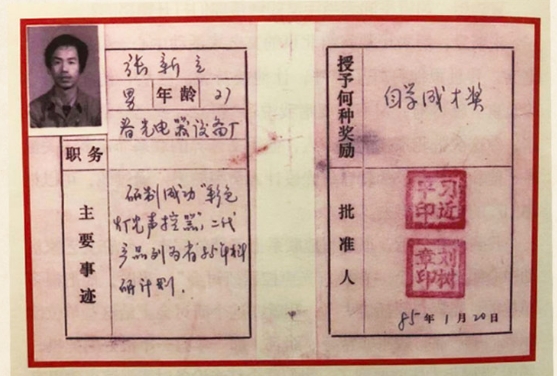 张新立
男 年龄 27
春光电器设备厂
职务
主要事迹
研制成功"彩色
灯光声控器",二代
产品列为省85年科
研计划.
授予何种奖励
自学成才奖
批准人
习近
平印
刘树
章印
85年1月20日